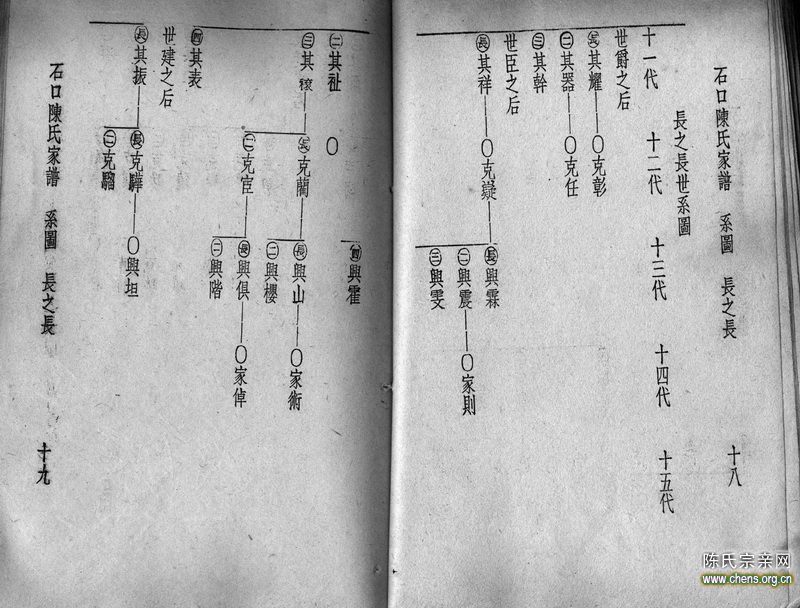 石口陳氏家譜 系圖 長之長 十八
長之長世系圖
十一代 十二代 十三代 十四代 十五代
世爵之后
㊁其耀 〇克彰
㊁其器 〇克任
㊂其幹
世臣之后
長其祥 〇克嶷
長興霖
㊁興震 〇家則
㊂興雯
㊃興霍
㊁其祉 〇
㊂其
長克藺
長興山 〇家術
㊁興櫻
㊁克宦
長興俱 〇家倬
㊁興階
㊃其表
世建之后
長其振
長克驊 〇興坦
㊁克騮
石口陳氏家譜 系圖 長之長 十九
陈氏宗亲网
www.chens.org.cn